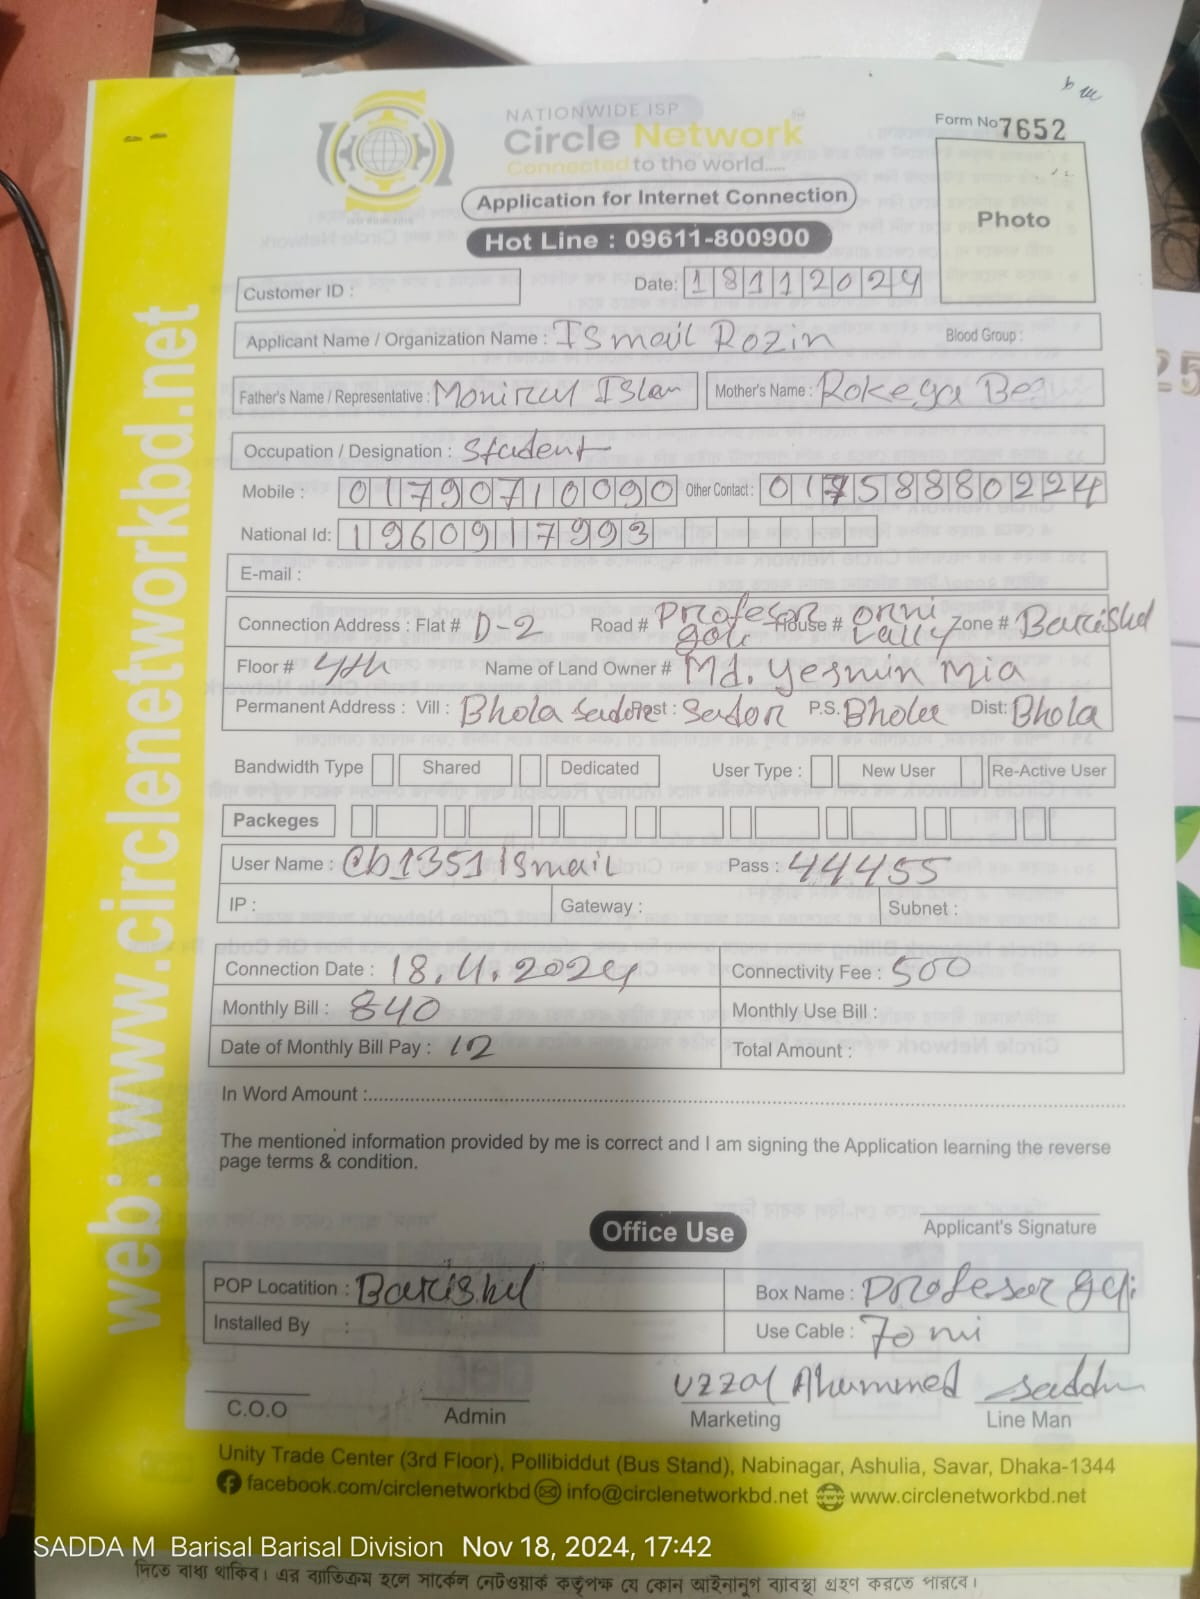 NATIONWIDE ISP
Circle Network
Connected to the world.....
Form No 7652
Application for Internet Connection
Photo
Hot Line : 09611-800900
Customer ID :
Date: 18112024
Applicant Name / Organization Name : ISmail Rozin Blood Group :
Father's Name / Representative : Monirul Islam Mother's Name : Rokeya Begum
Occupation / Designation : Student
Mobile : 01790710090 Other Contact : 01758880224
National Id: 1960917993
E-mail :
Connection Address : Flat # D-2 Road # Profesor goli House # Zone # Barishal
Floor # 4th Name of Land Owner # Md. Yesmin Mia
Permanent Address : Vill : Bhola Sador Post : Sador P.S. Bhola Dist: Bhola
Bandwidth Type Shared Dedicated User Type : New User Re-Active User
Packeges
User Name : @b1351 ismail Pass : 44455
IP : Gateway : Subnet :
Connection Date : 18.11.2024 Connectivity Fee : 500
Monthly Bill : 840 Monthly Use Bill :
Date of Monthly Bill Pay : 12 Total Amount :
In Word Amount :
The mentioned information provided by me is correct and I am signing the Application learning the reverse
page terms & condition.
Applicant's Signature
Office Use
POP Locatition : Barishal Box Name : Profesor goli
Installed By : Use Cable : 70 mi
Uzzal Ahammed Saddam
C.O.O Admin Marketing Line Man
Unity Trade Center (3rd Floor), Pollibiddut (Bus Stand), Nabinagar, Ashulia, Savar, Dhaka-1344
facebook.com/circlenetworkbd info@circlenetworkbd.net www.circlenetworkbd.net
web: www.circlenetworkbd.net
SADDA M Barisal Barisal Division Nov 18, 2024, 17:42
দিতে বাধ্য থাকিব। এর ব্যতিক্রম হলে সার্কেল নেটওয়ার্ক কর্তৃপক্ষ যে কোন আইনানুগ ব্যাবস্থা গ্রহণ করতে পারবে।
25